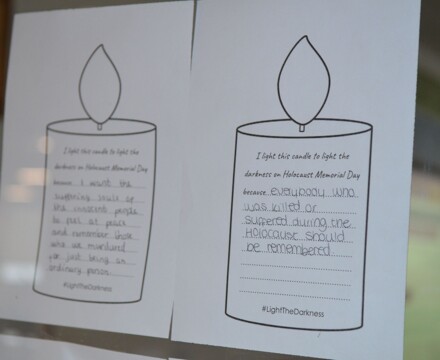 I light this candle to light the
darkness on Holocaust Memorial Day
because I want the
suffering souls of
the innocent people
to rest at peace
and remember those
who are murdered
for just being an
ordinary person.
#LightTheDarkness
I light this candle to light the
darkness on Holocaust Memorial Day
because everybody who
was killed or
suffered during the
Holocause should
be remembered
#LightTheDarkness